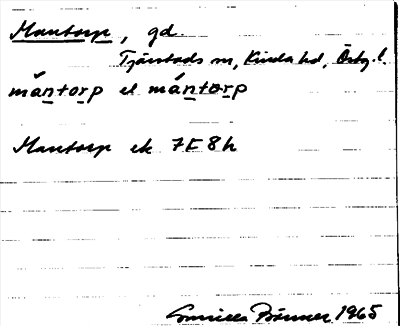 Mantorp, gd.
Tjärstads sn, Kinda hd, Östg. l.
mántorp el mántorp
Mantorp ek 7F 8h
Gunilla Bränner 1965